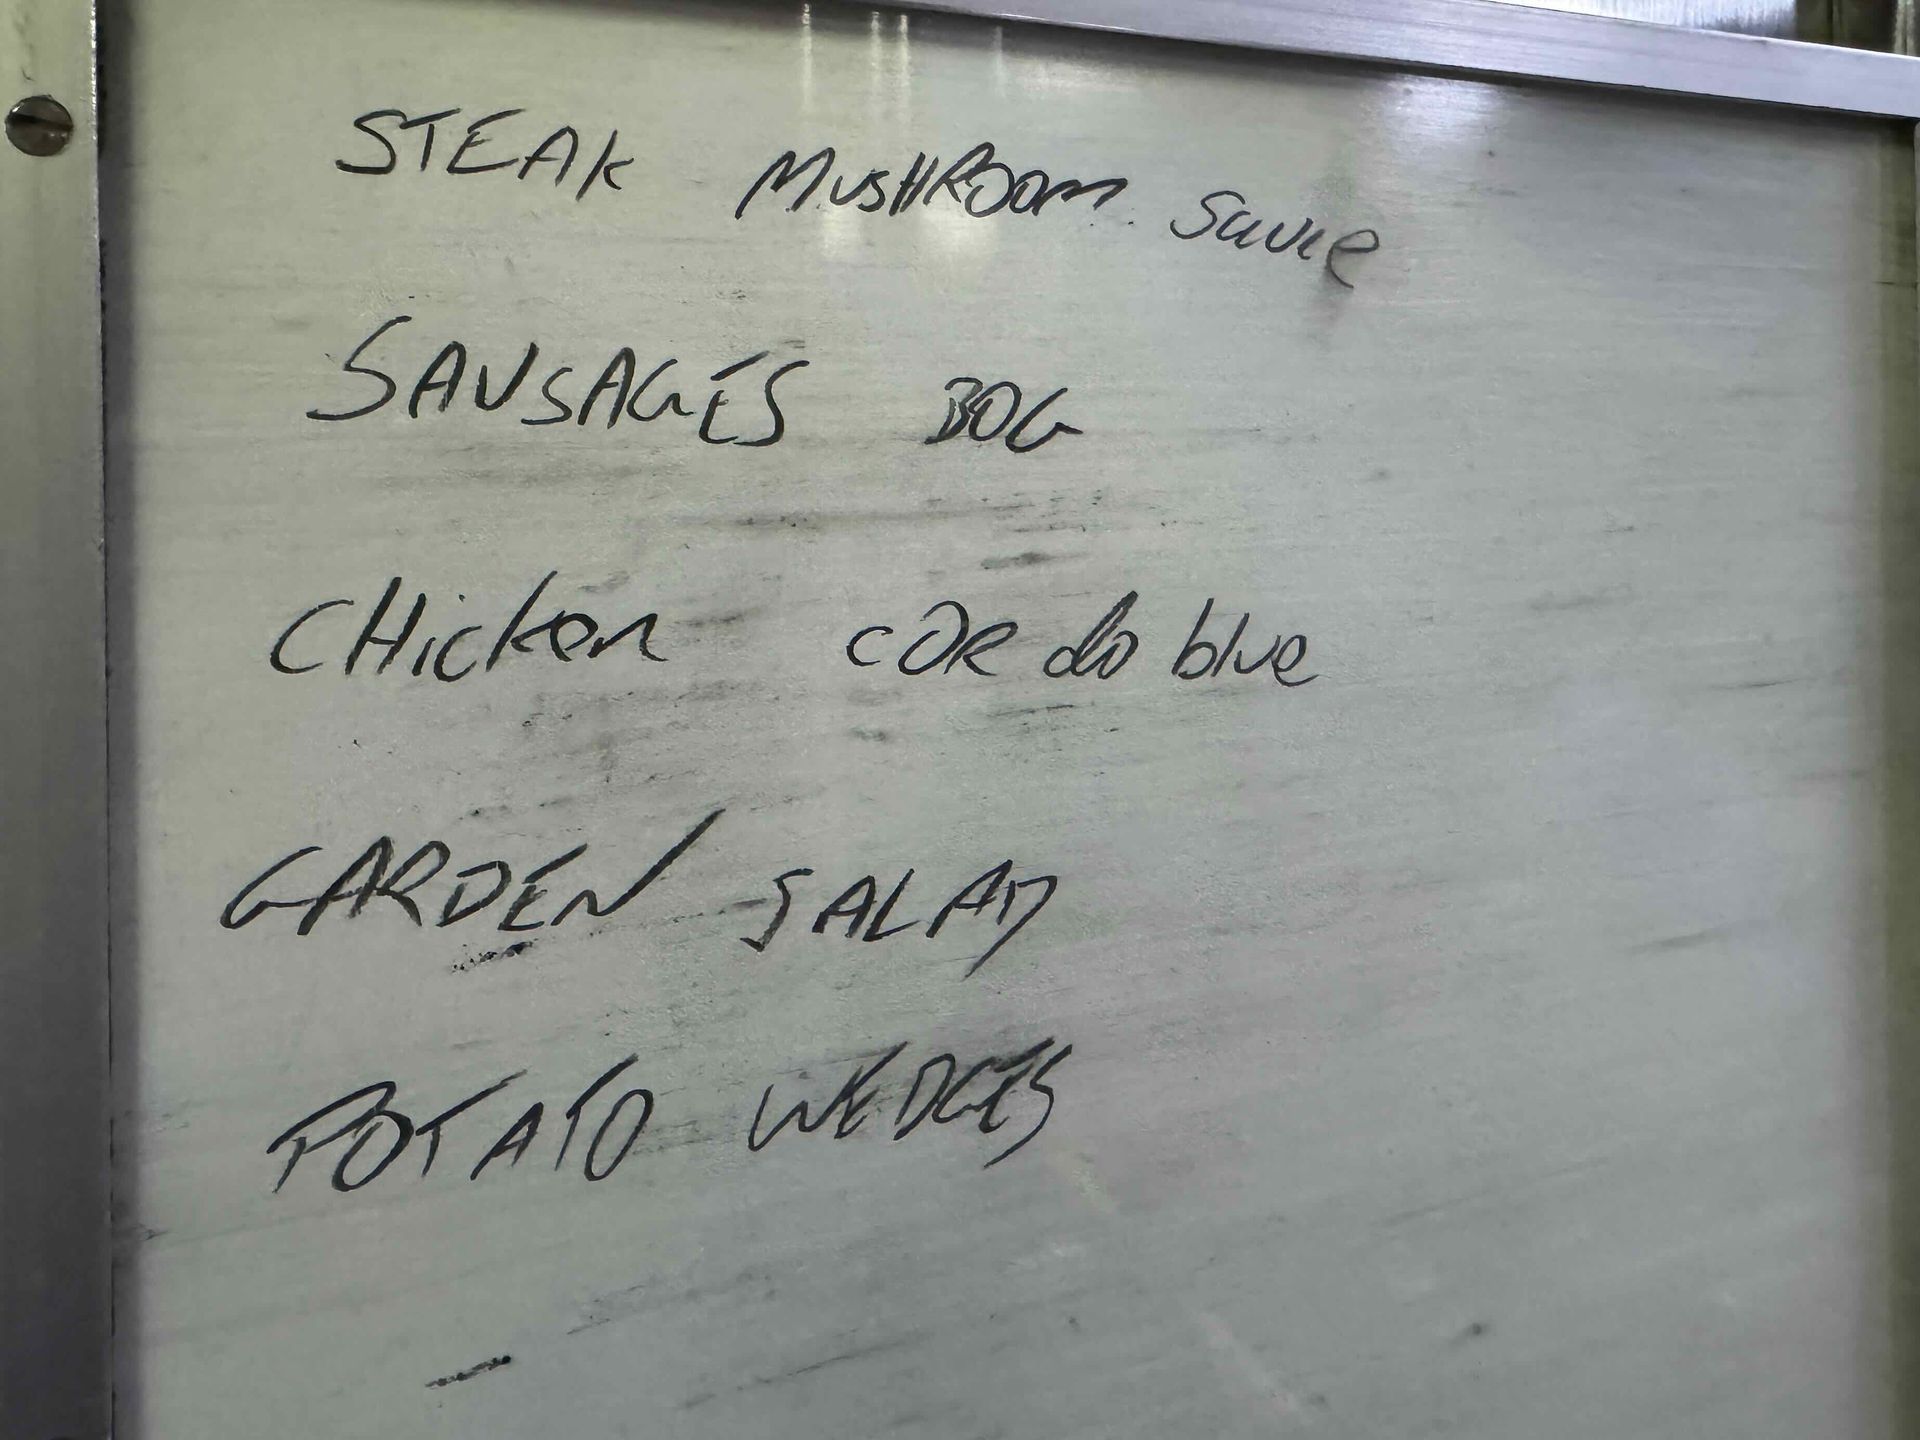 STEAK MUSHROOM Sauce
SAUSAGES BOG
CHicken CORdo blue
GARDEN SALAD
POTATO WEDGES